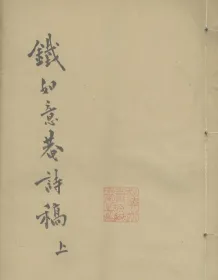 鐵如意菴詩稿 上